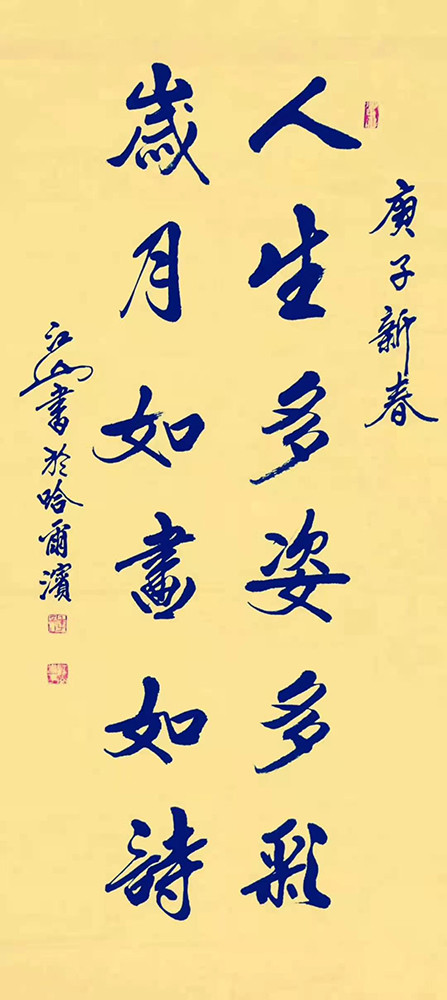 庚子新春
人生多姿多彩
歲月如畫如詩
江山書於哈爾濱